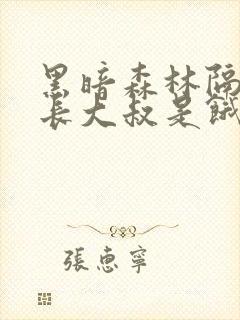 黑暗森林隔
長大叔是餓
張惠寧